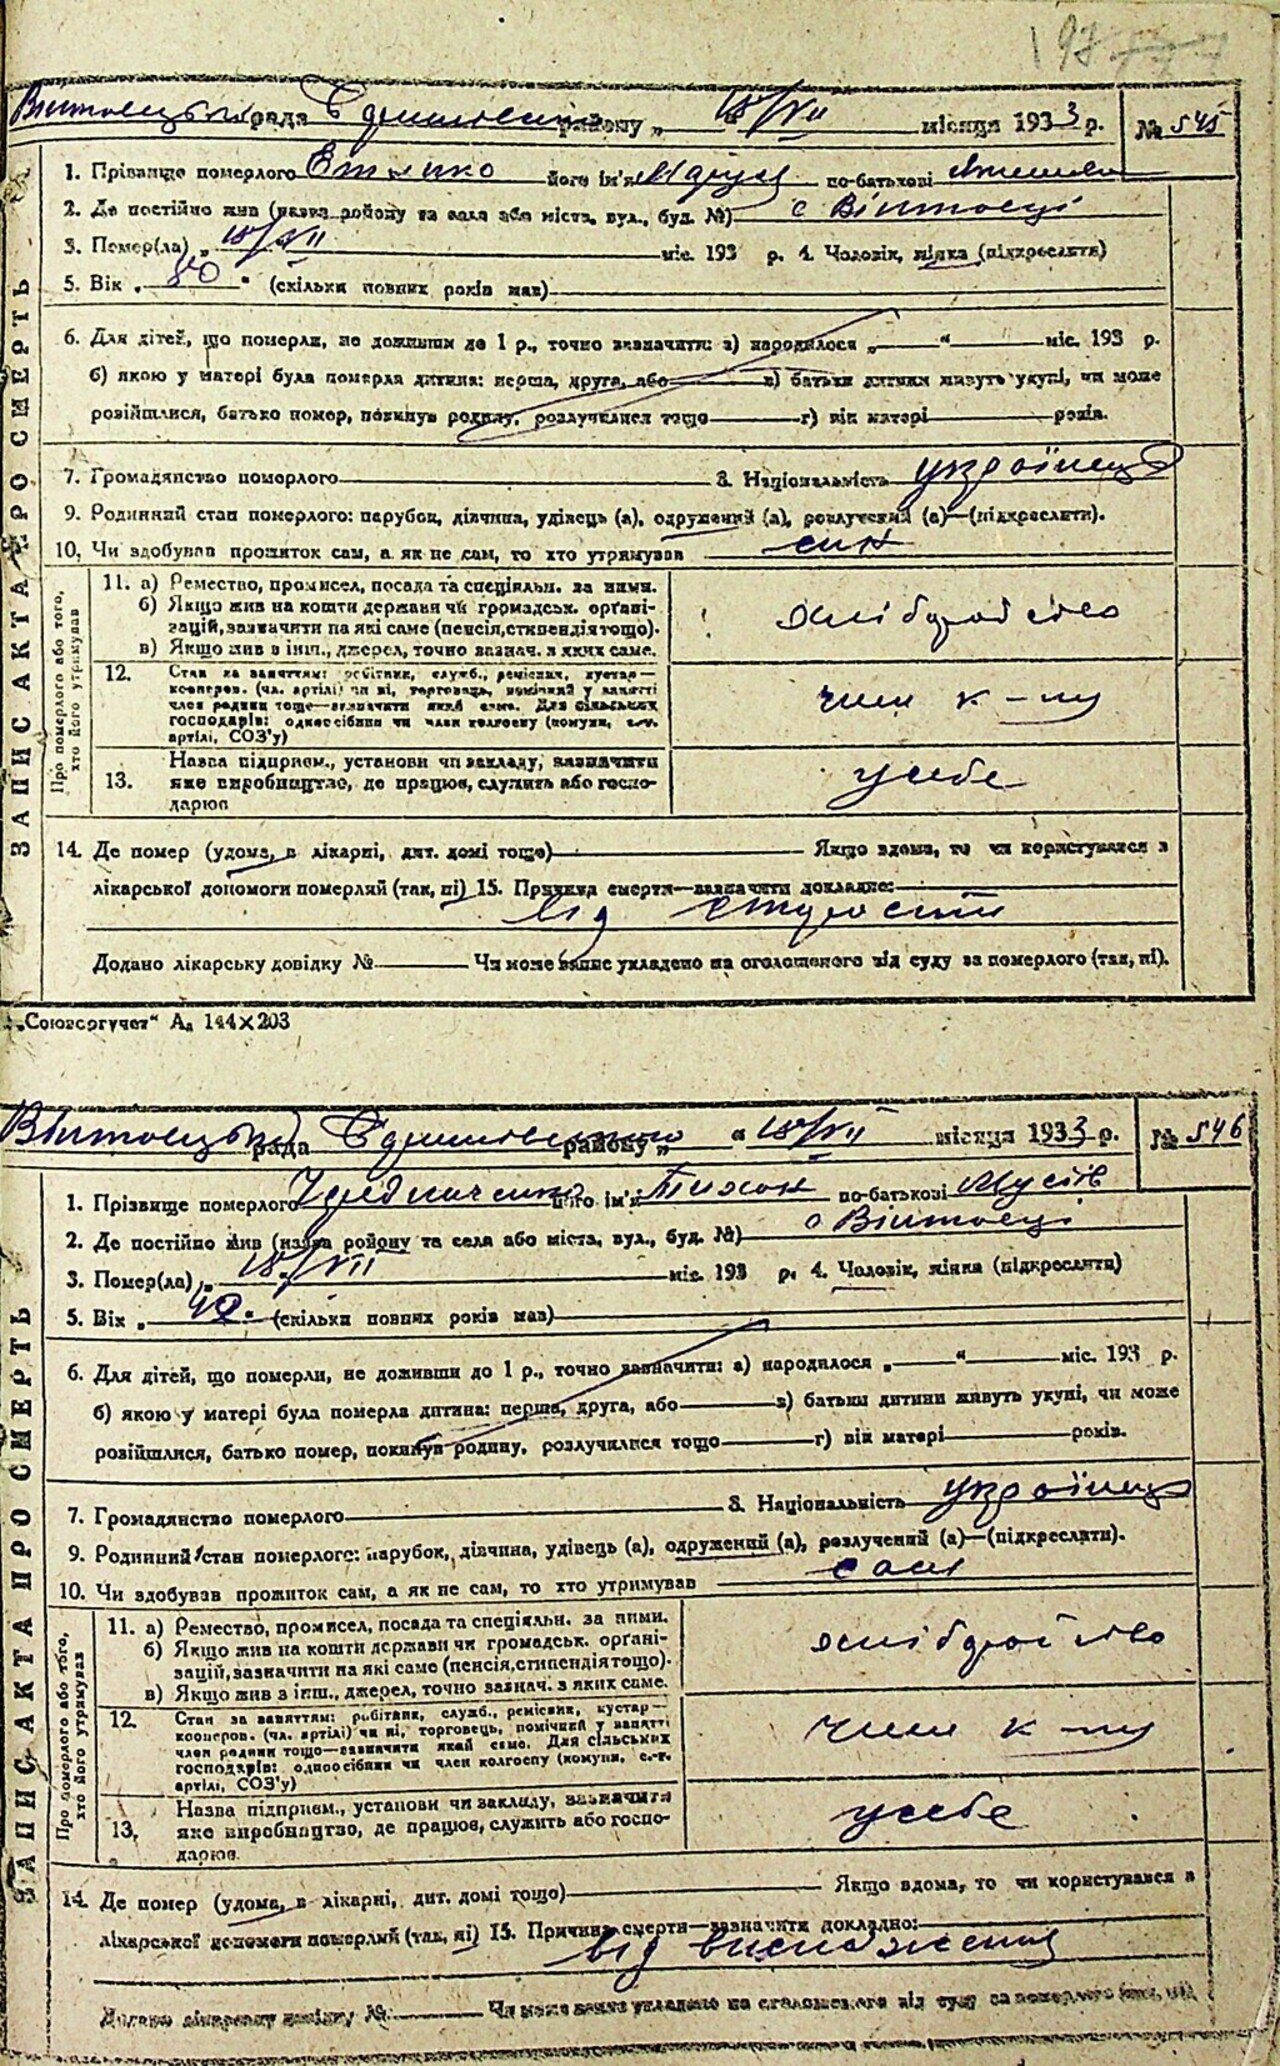 197
рада районує „ 18/VII місяця 1933 р. № 545
1. Прізвище померлого його ім'я по-батькові
2. Де постійно жив (назва району та села або міста, вул., буд. №) с Війтовці
3. Помер(ла) „ 18/VII міс. 193 р. 4. Чоловік, жінка (підкреслити)
5. Вік „ 80 " (скільки повних років мав)
6. Для дітей, що померли, не доживши до 1 р., точно зазначити: а) народилося „ " міс. 193 р.
б) якою у матері була померла дитина: перша, друга, або в) батьки дитини живуть укупі, чи може
розійшлися, батько помер, покинув родину, розлучилися тощо г) вік матері років.
7. Громадянство померлого 8. Національність українець
9. Родинний стан померлого: парубок, дівчина, удівець (а), одружений (а), розлучений (а)—(підкреслити).
10. Чи здобував прожиток сам, а як не сам, то хто утримував син
ЗАПИС АКТА ПРО СМЕРТЬ
Про померлого або того, хто його утримував
11. а) Ремество, промисел, посада та спеціяльн. за ними.
б) Якщо жив на кошти держави чи громадськ. орґані-
зацій, зазначити на які саме (пенсія, стипендія тощо).
в) Якщо жив з інш., джерел, точно зазнач. з яких саме.
хліборобство
12. Стан за заняттям: робітник, служб., ремісник, кустар—
кооперов. (чл. артілі) чи ні, торговець, помічний у занятті
член родини тощо—зазначити який саме. Для сільських
господарів: одноосібник чи член колгоспу (комуни, с.-г.
артілі, СОЗ'у)
член к-пу
13. Назва підприєм., установи чи закладу, зазначити
яке виробництво, де працює, служить або госпо-
дарює
у себе
14. Де помер (удома, в лікарні, дит. домі тощо) Якщо вдома, то чи користувався з
лікарської допомоги померлий (так, ні) 15. Причина смерти—зазначити докладно:
від старости
Додано лікарську довідку № Чи може запис укладено на оголошеного від суду за померлого (так, ні).
„Союзоргучет" А₄ 144×203
рада районує „ " 18/VII місяця 1933 р. № 546
1. Прізвище померлого Чередниченко його ім'я Тихон по-батькові Мусіїв
2. Де постійно жив (назва району та села або міста, вул., буд. №) с Війтовці
3. Помер(ла) „ 18/VII міс. 193 р. 4. Чоловік, жінка (підкреслити)
5. Вік „ 49 " (скільки повних років мав)
6. Для дітей, що померли, не доживши до 1 р., точно зазначити: а) народилося „ " міс. 193 р.
б) якою у матері була померла дитина: перша, друга, або в) батьки дитини живуть укупі, чи може
розійшлися, батько помер, покинув родину, розлучилися тощо г) вік матері років.
7. Громадянство померлого 8. Національність українець
9. Родинний стан померлого: парубок, дівчина, удівець (а), одружений (а), розлучений (а)—(підкреслити).
10. Чи здобував прожиток сам, а як не сам, то хто утримував сам
ЗАПИС АКТА ПРО СМЕРТЬ
Про померлого або того, хто його утримував
11. а) Ремество, промисел, посада та спеціяльн. за ними.
б) Якщо жив на кошти держави чи громадськ. орґані-
зацій, зазначити на які саме (пенсія, стипендія тощо).
в) Якщо жив з інш., джерел, точно зазнач. з яких саме.
хліборобство
12. Стан за заняттям: робітник, служб., ремісник, кустар—
кооперов. (чл. артілі) чи ні, торговець, помічний у занятті
член родини тощо—зазначити який саме. Для сільських
господарів: одноосібник чи член колгоспу (комуни, с.-г.
артілі, СОЗ'у)
член к-пу
13. Назва підприєм., установи чи закладу, зазначити
яке виробництво, де працює, служить або госпо-
дарює
у себе
14. Де помер (удома, в лікарні, дит. домі тощо) Якщо вдома, то чи користувався з
лікарської допомоги померлий (так, ні) 15. Причина смерти—зазначити докладно:
від виснаження
Додано лікарську довідку № Чи може запис укладено на оголошеного від суду за померлого (так, ні)